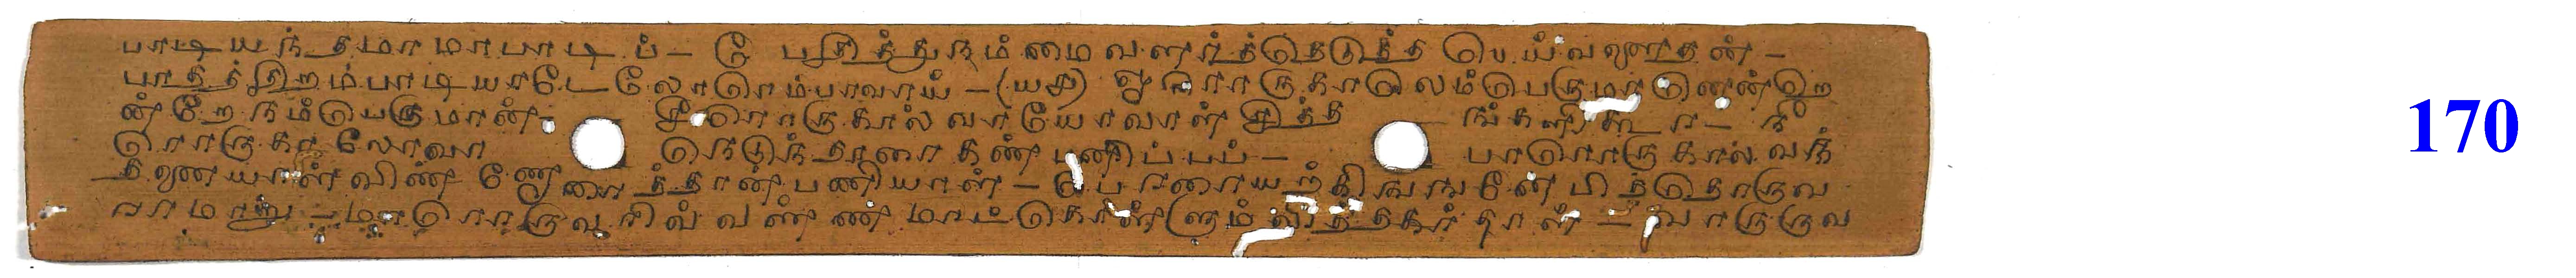 பாடியந்தமாமாபாடிப் - பேதித்துநம்மைவளர்த்தெடுத்த பெய்வளைதன் -
பாதத்திறம்பாடியாடேலோரெம்பாவாய் - (யச) ஓரொருகாலெம்பெருமானென்றெ
ன்றே நம்பெருமான் - சீரொருகால்வாயோவாள் சித்தங்களிகூர - நீ
ரொருகாலோவா நெடுந்தாரை கண்பனிப்பப் - பாரொருகால்வந்
தனையாள்விண்ணோரைத்தான்பணியாள் - பேரரையற்கிங்ஙனே பித்தொருவ
ராமாறு - மாரொருவரிவ்வண்ண மாட்கொள்ளும் வித்தகர்தாள் - வாருருவ
170